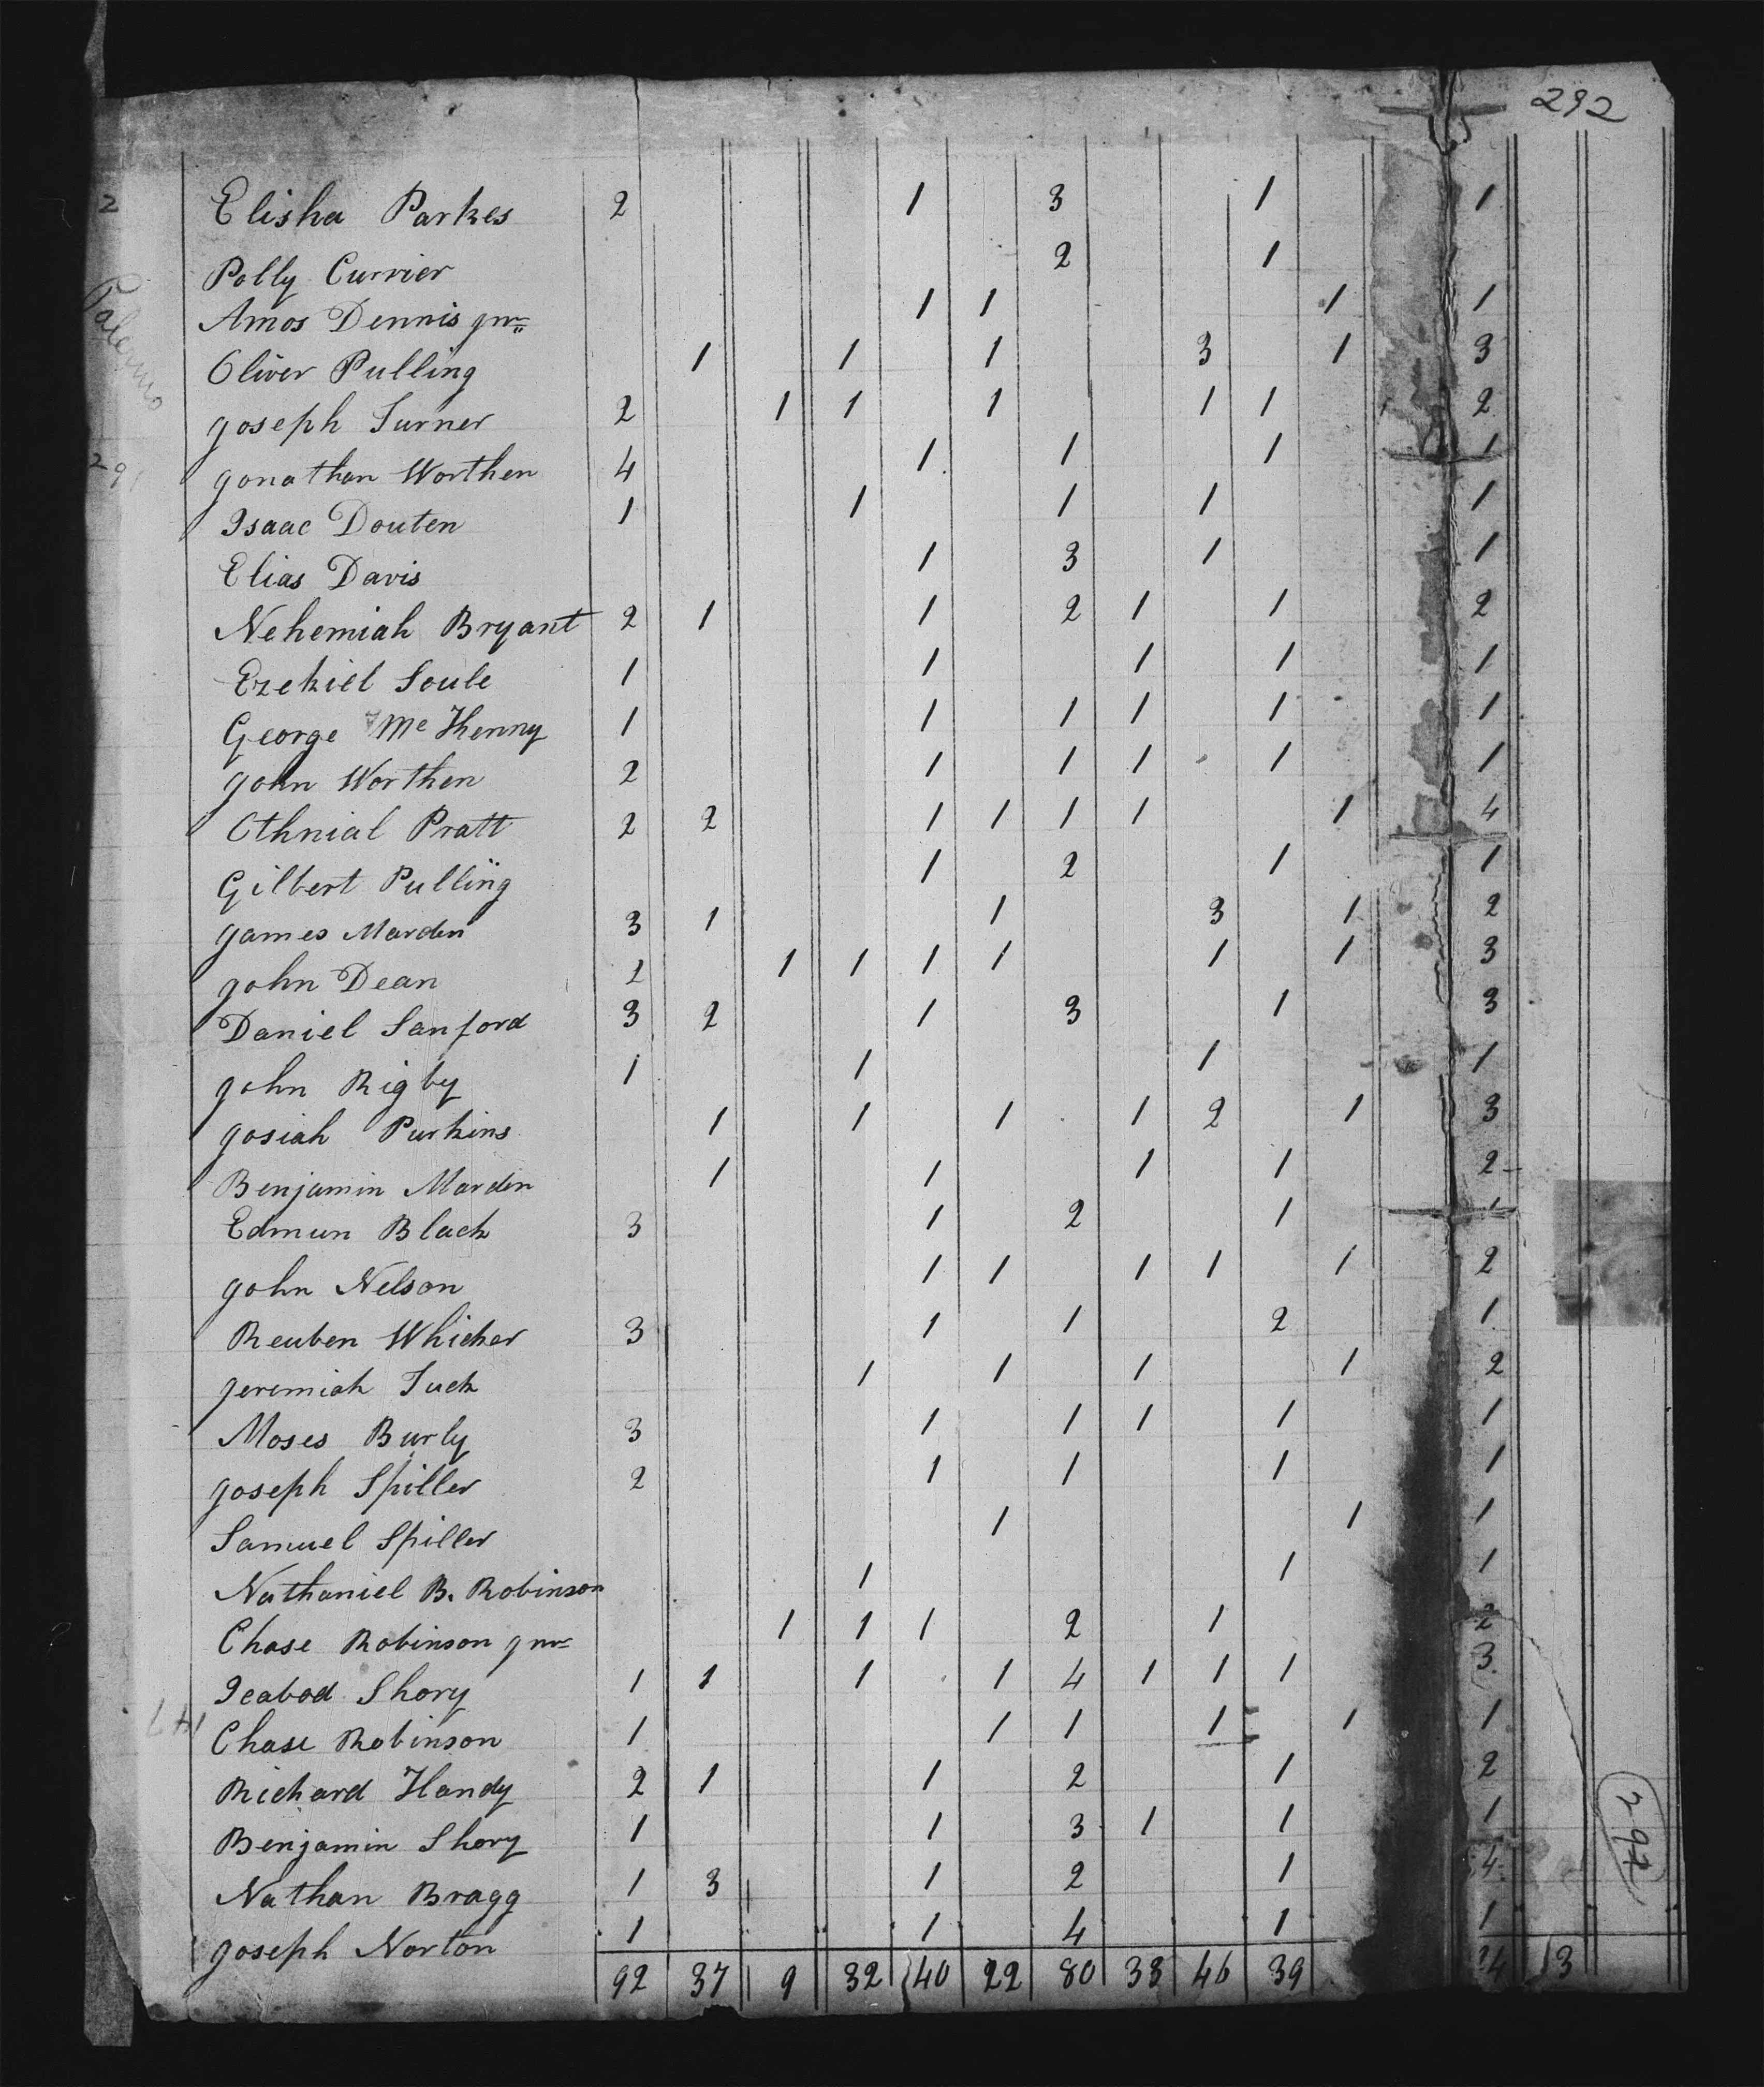 292
2 Elisha Parkes 2 1 3 1 1
Polly Currier 2 1
Palermo
Amos Dennis Jnr 1 1 1 1
Oliver Pulling 1 1 1 3 1 3
Joseph Turner 2 1 1 1 1 1 2
291 Jonathan Worthen 4 1 1 1 1
Isaac Douten 1 1 1 1 1
Elias Davis 1 3 1 1
Nehemiah Bryant 2 1 1 2 1 1 2
Ezekiel Soule 1 1 1 1 1
George McKenny 1 1 1 1 1 1
John Worthen 2 1 1 1 1 1
Othnial Pratt 2 2 1 1 1 1 1 4
Gilbert Pulling 1 2 1 1
James Marden 3 1 1 3 1 2
John Dean 2 1 1 1 1 1 1 3
Daniel Sanford 3 2 1 3 1 3
John Rigby 1 1 1 1
Josiah Purkins 1 1 1 1 2 1 3
Benjamin Marden 1 1 1 1 2
Edmun Black 3 1 2 1 1
John Nelson 1 1 1 1 1 2
Reuben Whicher 3 1 1 2 1
Jeremiah Tuck 1 1 1 1 2
Moses Burly 3 1 1 1 1 1
Joseph Spiller 2 1 1 1 1
Samuel Spiller 1 1 1
Nathaniel B. Robinson 1 1 1
Chase Robinson Jnr 1 1 1 2 1 2
Icabod Shory 1 1 1 1 4 1 1 1 3
Chase Robinson 1 1 1 1 1 1
Richard Handy 2 1 1 2 1 2
Benjamin Shory 1 1 3 1 1 1
Nathan Bragg 1 3 1 2 1 4
Joseph Norton 1 1 4 1 1
92 37 9 32 40 22 80 33 46 39 3
292